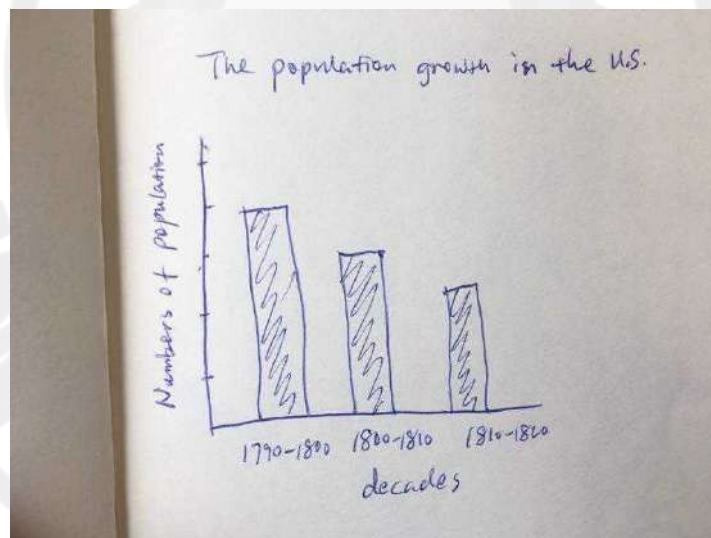 The population growth in the U.S.
Numbers of population
1790-1800 1800-1810 1810-1820
decades